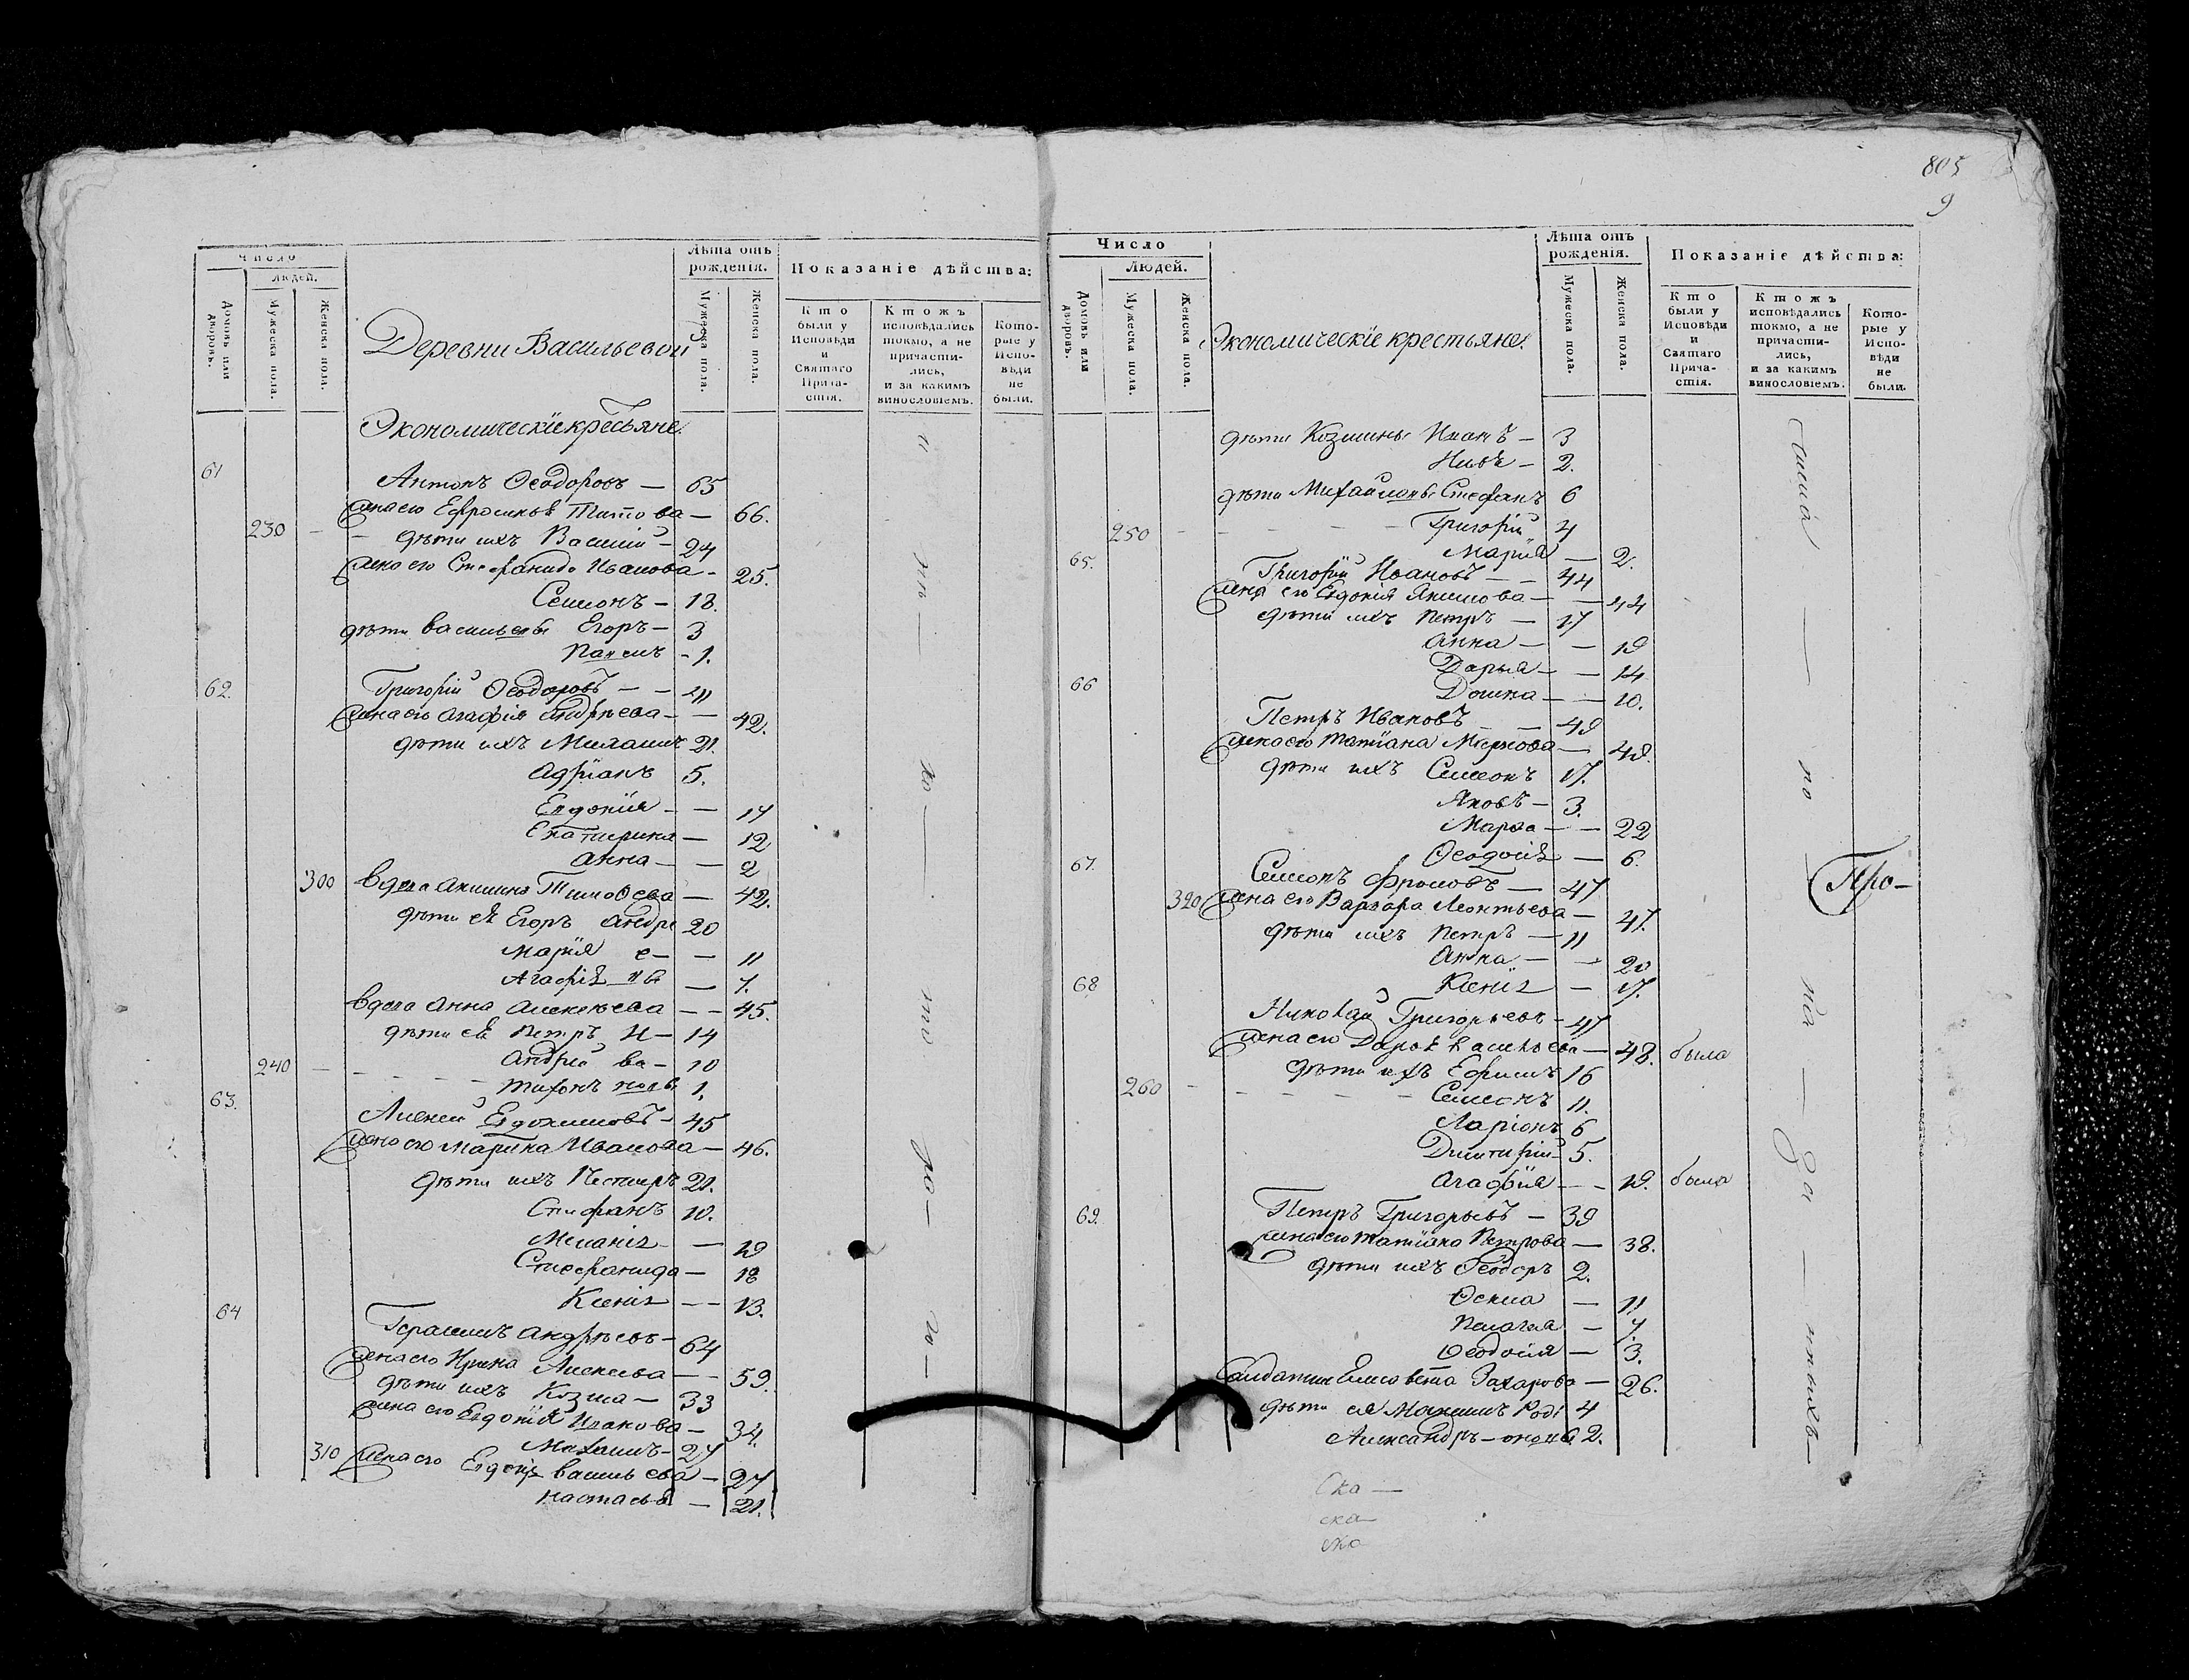 Число
Людей.
Домовъ или дворовъ.
Мужеска пола.
Женска пола.
Деревни Васильевой
Лѣта отъ рожденія.
Мужеска пола.
Женска пола.
Показаніе дѣйства:
Кто были у Исповѣди и Святаго Прича-стія.
Ктожъ исповѣдались токмо, а не причасти-лись, и за какимъ винословіемъ.
Кото-рые у Испо-вѣди не были.
Экономическіе крестьяне
61
Антонъ Ѳеодоровъ — 65
жена его Ефросинья Титова — 66.
230 — дѣти ихъ Василій — 24
жена его Стефанида Иванова — 25.
Семіонъ — 18.
дѣти васильевы Егоръ — 3
1.
62.
Григорій Ѳеодоровъ — — 41
жена его агафія андрѣева — — 42.
дѣти ихъ 21.
адріанъ 5.
Евдокія — — 14
Екатирина — 12
анна — — 2
300 вдова акилина Тимоѳеева — 42.
дѣти ея Егоръ андре 20
марія е — — 11
Агафія вы — 7.
вдова анна алексѣева — — 45.
дѣти ея петръ И — 14
240 — андрей ва — 10
тихонъ новы 1.
63.
Алексѣй Евдокимовъ — 45
жена его марина Иванова — 46.
дѣти ихъ 21.
Стефанъ 10.
Меланія — — 19
Стефанида — 18
Ксенія — — 13.
64
Герасимъ андрѣевъ — 64
жена его Ирина Алексеева — — 59.
дѣти ихъ Козма — 33
жена его Евдокія Иванова — 34.
Михаилъ — 27
310 жена его Евдокія васильева — 27
настасья — 21.
805
9
Число
Людей.
Домовъ или дворовъ.
Мужеска пола.
Женска пола.
Экономическіе крестьяне
Лѣта отъ рожденія.
Мужеска пола.
Женска пола.
Показаніе дѣйства:
Кто были у Исповѣди и Святаго Прича-стія.
Ктожъ исповѣдались токмо, а не причасти-лись, и за какимъ винословіемъ.
Кото-рые у Испо-вѣди не были.
дѣти Козмины Иванъ — 3
2.
дѣти Михайловы Стефанъ 6
250 — Григорій 4
марія — 2.
65.
Григорій Ивановъ — — 44
жена его Евдокія Якимова — — 44
дѣти ихъ петръ — 17
анна — — 19
Дарья — — 14
Домна — — 10.
66
Петръ Ивановъ — — 49
жена его татіана Маркова — 48.
дѣти ихъ Семіонъ 17.
Яковъ — 3.
Марѳа — — 22
Ѳеодосія — 6.
67.
Семіонъ Фроловъ — 47
320 жена его Варвара Леонтьева — 47.
дѣти ихъ петръ — 11
анна — — 20
Ксенія — 17.
68
Николай Григорьевъ — 47
жена его Дарья васильева — 48. была
дѣти ихъ Ефимъ 16
260 — Семіонъ 11.
Ларіонъ 6
Димитрій — 5.
агафія — — 19. была
69.
Петръ Григорьевъ — 39
жена его татіана Петрова — 38.
дѣти ихъ Ѳеодоръ 2.
— 11
пелагея — 7.
Ѳеодосія — 3.
Салдатка Елисавета Захарова — 26.
дѣти ея Максимъ Роді 4
Александръ — оновы 2.
Про-
Ска —
ска —
ска